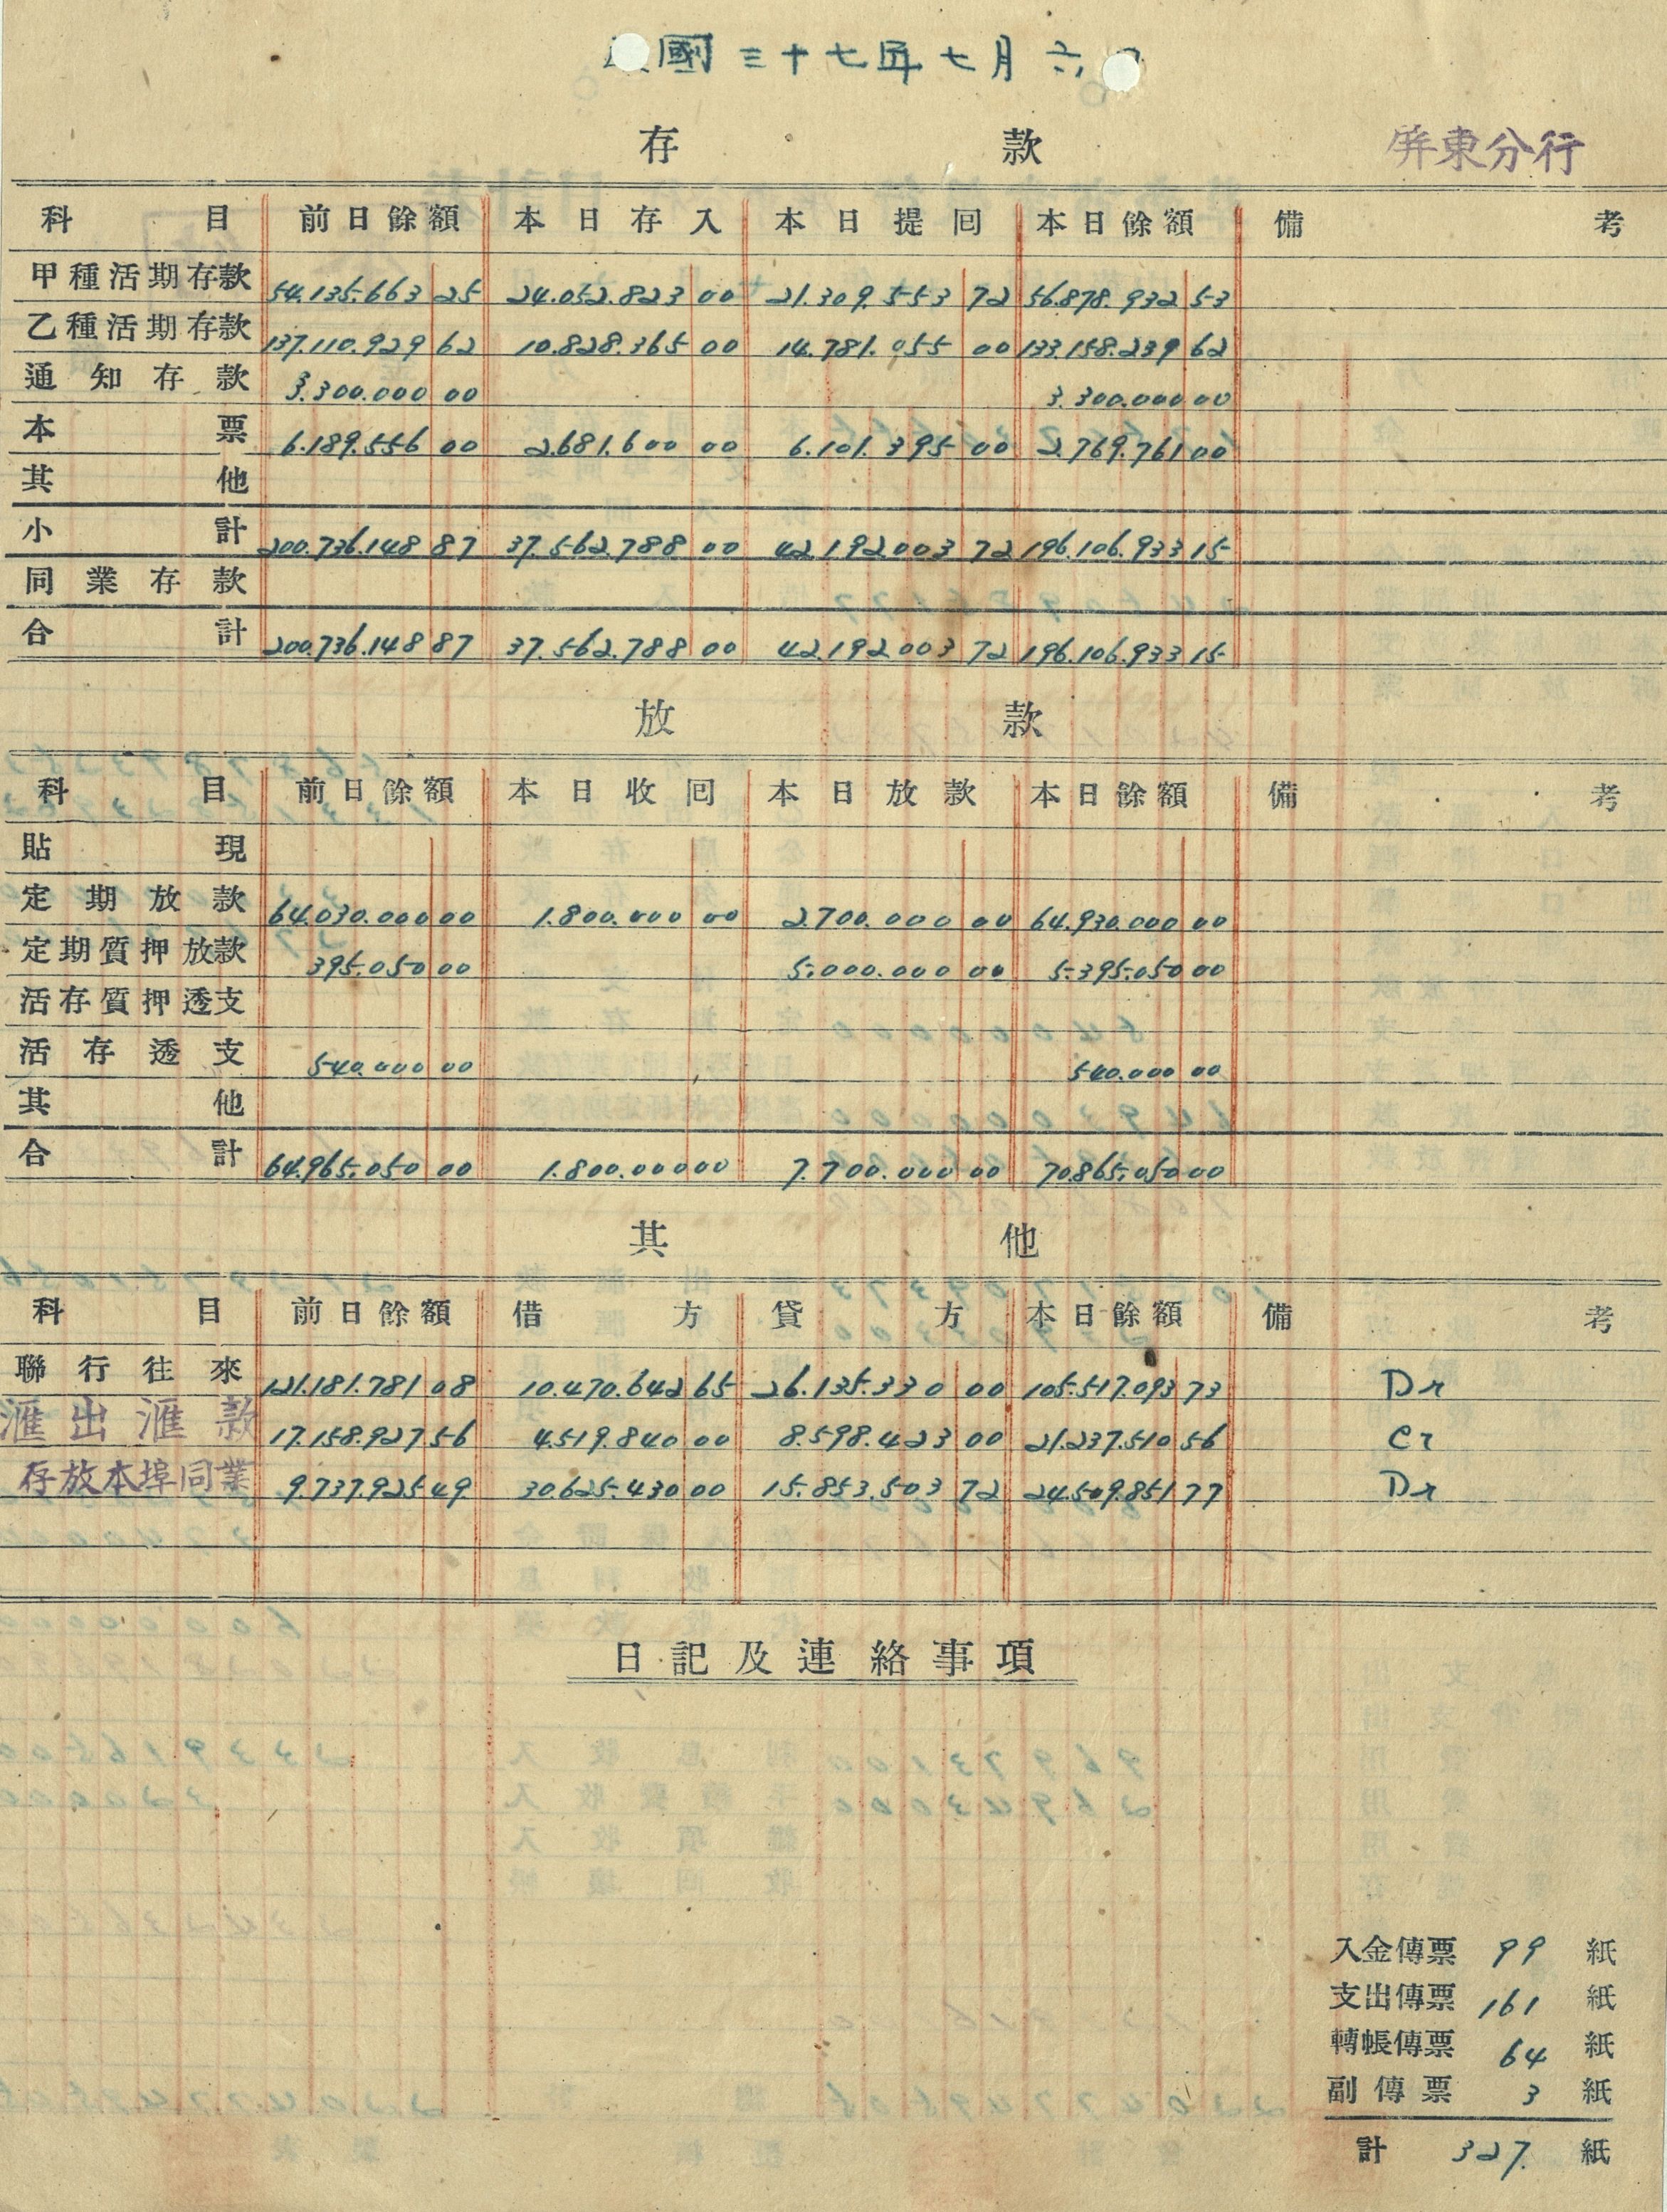 民國三十七年七月六日
存款 屏東分行
科目 前日餘額 本日存入 本日提囘 本日餘額 備考
甲種活期存款 54.135.663 25 24.052.823 00 21.309.553 72 56.878.932 53
乙種活期存款 137.110.929 62 10.828.365 00 14.781.055 00 133.158.239 62
通知存款 3.300.000 00 3.300.000 00
本票 6.189.556 00 2.681.600 00 6.101.395 00 2.769.761 00
其他
小計 200.736.148 87 37.562.788 00 42.192.003 72 196.106.933 15
同業存款
合計 200.736.148 87 37.562.788 00 42.192.003 72 196.106.933 15
放款
科目 前日餘額 本日收囘 本日放款 本日餘額 備考
貼現
定期放款 64.030.000 00 1.800.000 00 2.700.000 00 64.930.000 00
定期質押放款 395.050 00 5.000.000 00 5.395.050 00
活存質押透支
活存透支 540.000 00 540.000 00
其他
合計 64.965.050 00 1.800.000 00 7.700.000 00 70.865.050 00
其他
科目 前日餘額 借方 貸方 本日餘額 備考
聯行往來 121.181.781 08 10.470.642 65 26.135.330 00 105.517.093 73 Dr
滙出滙款 17.158.927 56 4.519.840 00 8.598.423 00 21.237.510 56 Cr
存放本埠同業 9.737.925 49 30.625.430 00 15.853.503 72 24.509.851 77 Dr
日記及連絡事項
入金傳票 99 紙
支出傳票 161 紙
轉帳傳票 64 紙
副傳票 3 紙
計 327. 紙